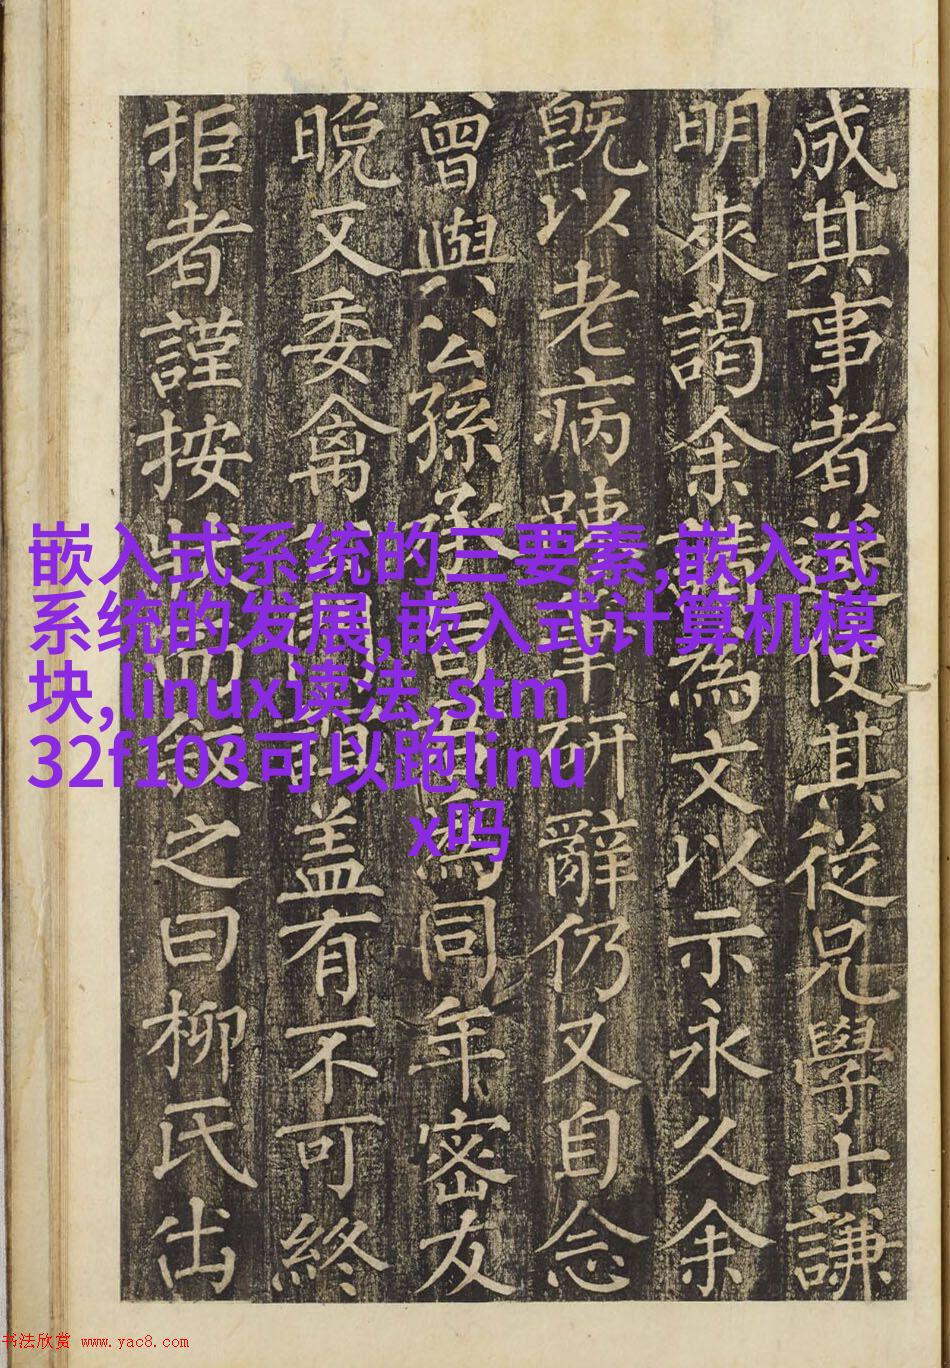 成其事者使其從兄學士謙
明來謁余請為文以示永久余
旣以老病研辭仍又自念
曾與公孫承旨為同年密友
晚又委禽盖有不可終
拒者謹按狀而叙之曰柳氏出
嵌入式系统的三要素,嵌入式
系统的发展,嵌入式计算机模
块,linux读法,stm
32f103可以跑linu
x吗
书法欣赏 www.yac8.com